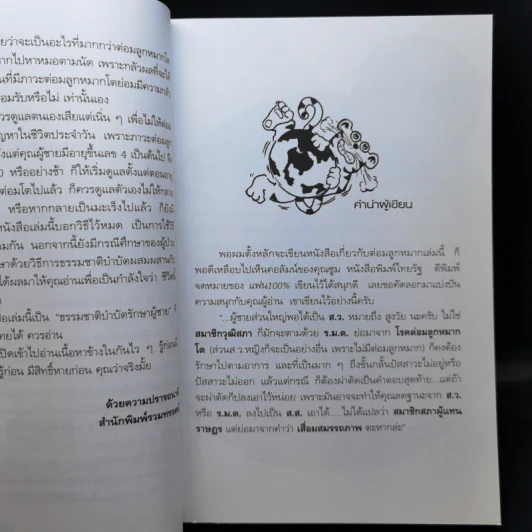 ยว่าจะเป็นอะไรที่มากกว่าต่อมลูกหมากโต
ากไปหาหมอตามนัด เพราะกลัวผลที่จะได้
นที่มีภาวะต่อมลูกหมากโตย่อมมีความกลัว
อมรับหรือไม่ เท่านั้นเอง
ควรดูแลตนเองเสียแต่เนิ่น ๆ เพื่อไม่ให้ต่อม
ญหาในชีวิตประจำวัน เพราะภาวะต่อมลูก
ั้งแต่คุณผู้ชายมีอายุขึ้นเลข 4 เป็นต้นไป
0 หรืออย่างช้า ก็ให้เริ่มดูแลตั้งแต่ตอนอายุ
ต่อมโตไปแล้ว ก็ควรดูแลตัวเองไม่ให้กลาย
หรือหากกลายเป็นมะเร็งไปแล้ว ก็ยังมี
นังสือเล่มนี้บอกวิธีไว้หมด เป็นการใช้วิธี
มกัน นอกจากนี้ยังมีกรณีศึกษาของผู้ป่วย
ักษาด้วยวิธีการธรรมชาติบำบัดผสมผสานกับ
ได้ผลมาให้คุณอ่านเพื่อเป็นกำลังใจว่า ชีวิต
สือเล่มนี้เป็น "ธรรมชาติบำบัดรักษาผู้ชาย"
ายได้ ควรอ่าน
ปิดเข้าไปอ่านเนื้อหาข้างในกันไว ๆ รู้ก่อน
รู้ก่อน มีสิทธิ์หายก่อน คุณว่าจริงมั้ย
ด้วยความปรารถนาดี
สำนักพิมพ์รวมทรรศน์
คำนำผู้เขียน
พอผมตั้งหลักจะเขียนหนังสือเกี่ยวกับต่อมลูกหมากเล่มนี้ ก็
พอดีเหลือบไปเห็นคอลัมน์ของคุณซูม หนังสือพิมพ์ไทยรัฐ ตีพิมพ์
จดหมายของ แฟน100% เขียนไว้ได้สนุกดี เลยขอคัดลอกมาแบ่งปัน
ความสนุกกับคุณผู้อ่าน เขาเขียนไว้อย่างนี้ครับ
"...ผู้ชายส่วนใหญ่พอได้เป็น ส.ว. หมายถึง สูงวัย นะครับ ไม่ใช่
สมาชิกวุฒิสภา ก็มักจะตามด้วย ร.ม.ต. ย่อมาจาก โรคต่อมลูกหมาก
โต (ส่วนส.ว.หญิงก็จะเป็นอย่างอื่น เพราะไม่มีต่อมลูกหมาก) ก็คงต้อง
รักษาไปตามอาการ และที่เป็นมาก ๆ ถึงขั้นกลั้นปัสสาวะไม่อยู่หรือ
ปัสสาวะไม่ออก แล้วแต่กรณี ก็ต้องผ่าตัดเป็นคำตอบสุดท้าย...แต่ถ้า
จะผ่าตัดก็ปลงเอาไว้หน่อย เพราะมันอาจจะทำให้คุณลดฐานะจาก ส.ว.
หรือ ร.ม.ต. ลงไปเป็น ส.ส. เอาได้....ไม่ได้แปลว่า สมาชิกสภาผู้แทน
ราษฎร แต่ย่อมาจากคำว่า เสื่อมสมรรถภาพ ตะหากล่ะ"